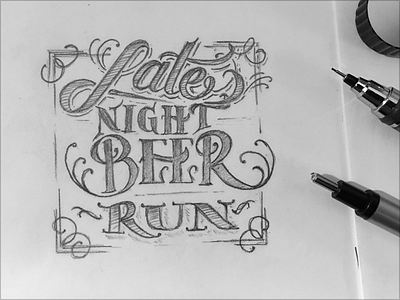 Late
NIGHT
BEER
RUN